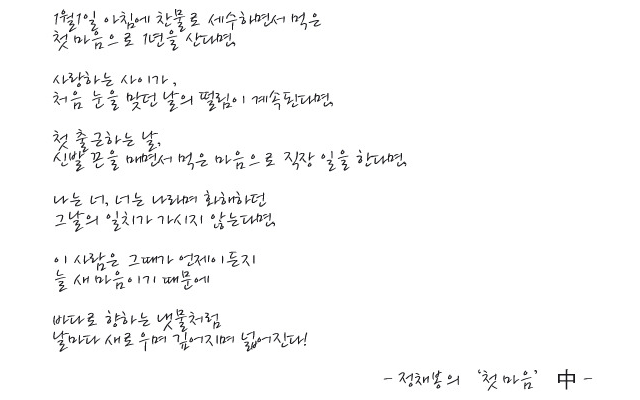 1월1일 아침에 찬물로 세수하면서 먹은
첫 마음으로 1년을 산다면,
사랑하는 사이가,
처음 눈을 맞던 날의 떨림이 계속된다면,
첫 출근하는 날,
신발 끈을 매면서 먹은 마음으로 직장 일을 한다면,
나는 너, 너는 나라며 화해하던
그날의 일치가 가시지 않는다면,
이 사람은 그때가 언제이든지
늘 새 마음이기 때문에
바다로 향하는 냇물처럼
날마다 새로우며 깊어지며 넓어진다!
- 정채봉의 '첫 마음' 中 -